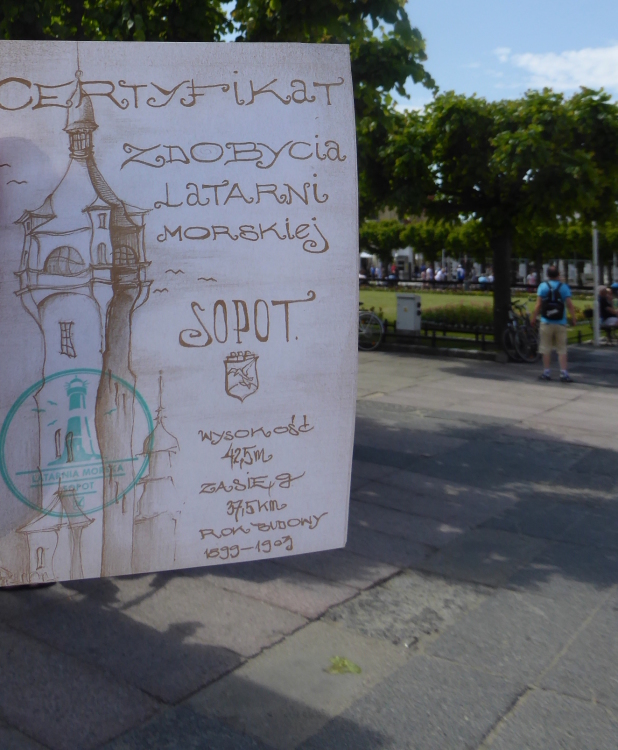 CERTYFiKaT
ZDOBYCia
LATARNi
MORSKiej
SOPOT.
WYSOKOŚĆ
42,5m
ZASIĘg
37,5km
ROK BUDOWY
1899-1903
LATARNIA MORSKA
SOPOT